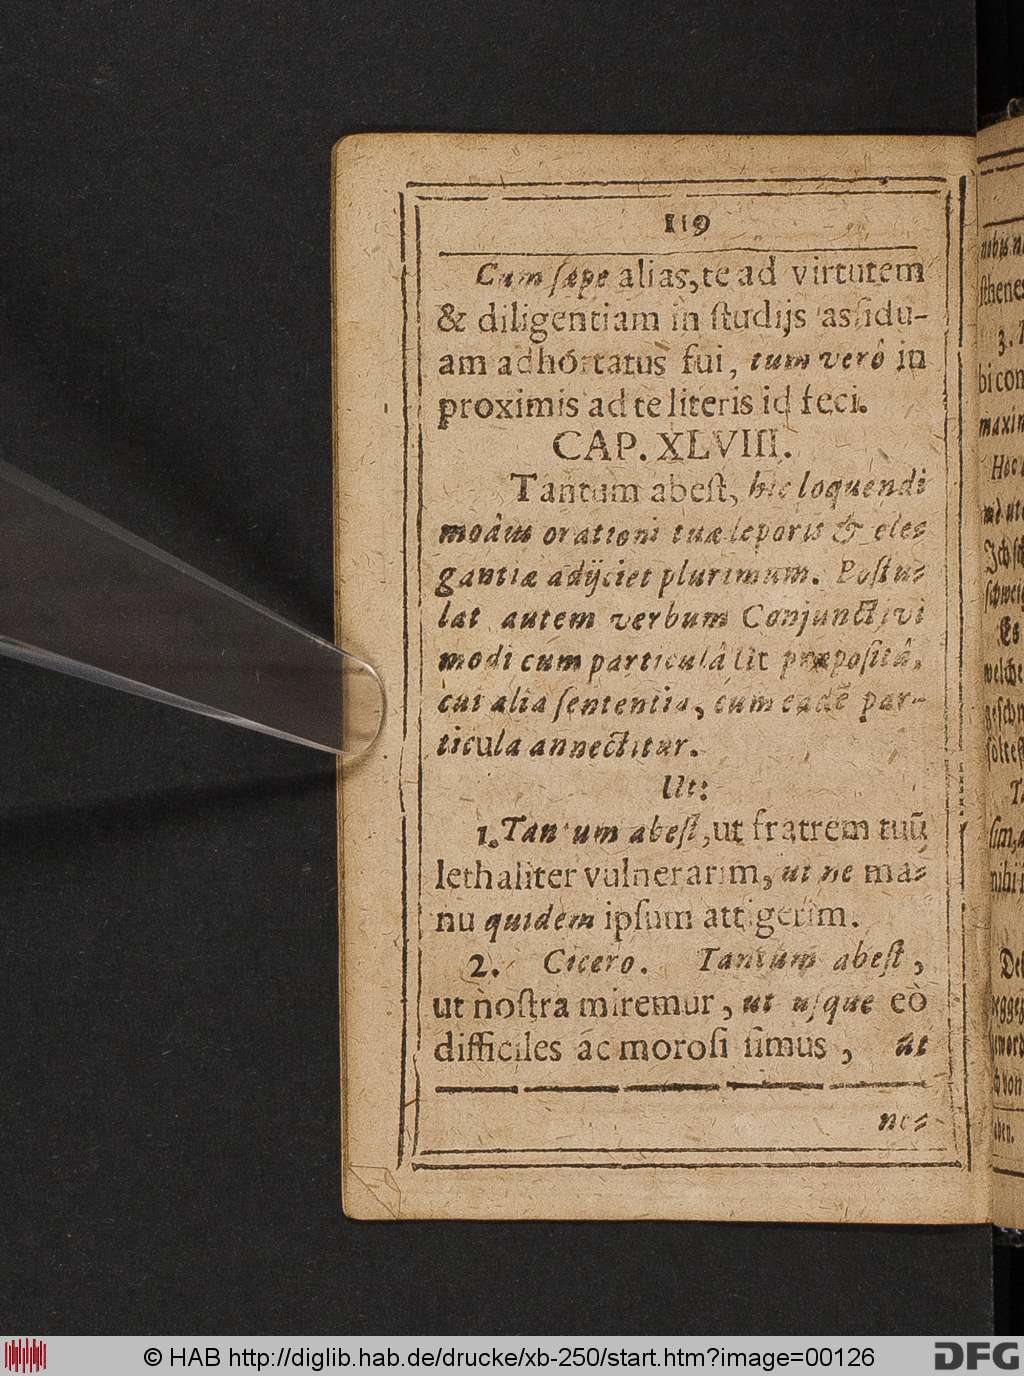 119
Cum sæpe alias, te ad virtutem
& diligentiam in studijs assidu-
am adhortatus fui, tum verò in
proximis ad te literis id feci.
CAP. XLVIII.
Tantum abest, hic loquendi
modus orationi tuæ leporis & ele-
gantiæ adijciet plurimum. Postu-
lat autem verbum Conjunctivi
modi cum particulâ Ut præpositâ,
cui alia sententia, cum eadẽ par-
ticula annectitur.
Ut:
1. Tantum abest, ut fratrem tuũ
lethaliter vulnerarim, ut ne ma-
nu quidem ipsum attigerim.
2. Cicero. Tantum abest,
ut nostra miremur, ut usque eò
difficiles ac morosi simus, ut
no-
nobis
sthenes
3.
bi con
Hoc
Ich
Es
welche
solte
nihi
© HAB http://diglib.hab.de/drucke/xb-250/start.htm?image=00126
DFG